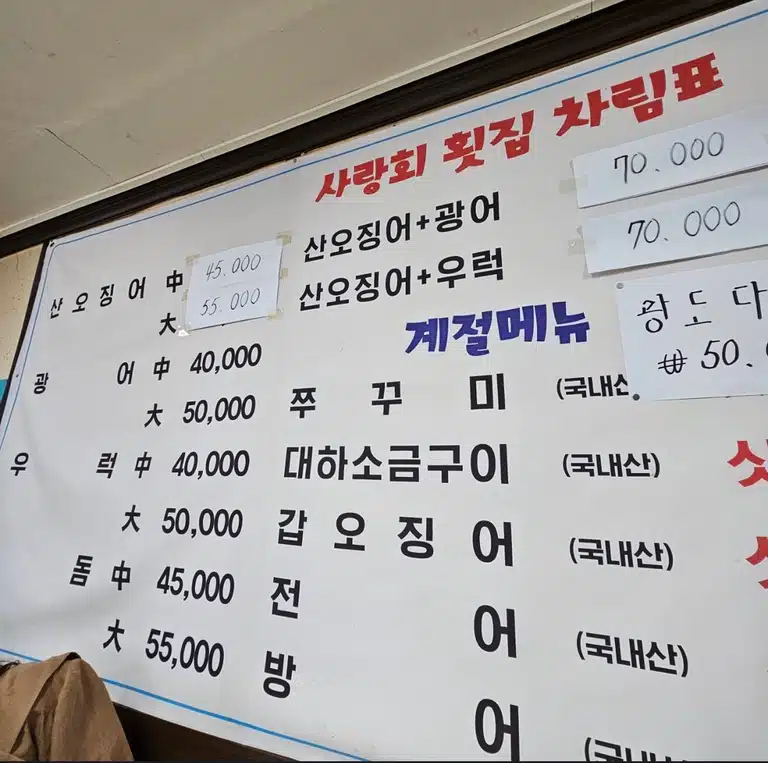 사랑회 횟집 차림표
산오징어 中 45.000
大 55.000
광어 中 40,000
大 50,000
우럭 中 40,000
大 50,000
돔 中 45,000
大 55,000
산오징어+광어 70.000
산오징어+우럭 70.000
계절메뉴
쭈꾸미 (국내산
대하소금구이 (국내산)
갑오징어 (국내산)
전어 (국내산)
방어 (국내산
광도다
₩50.